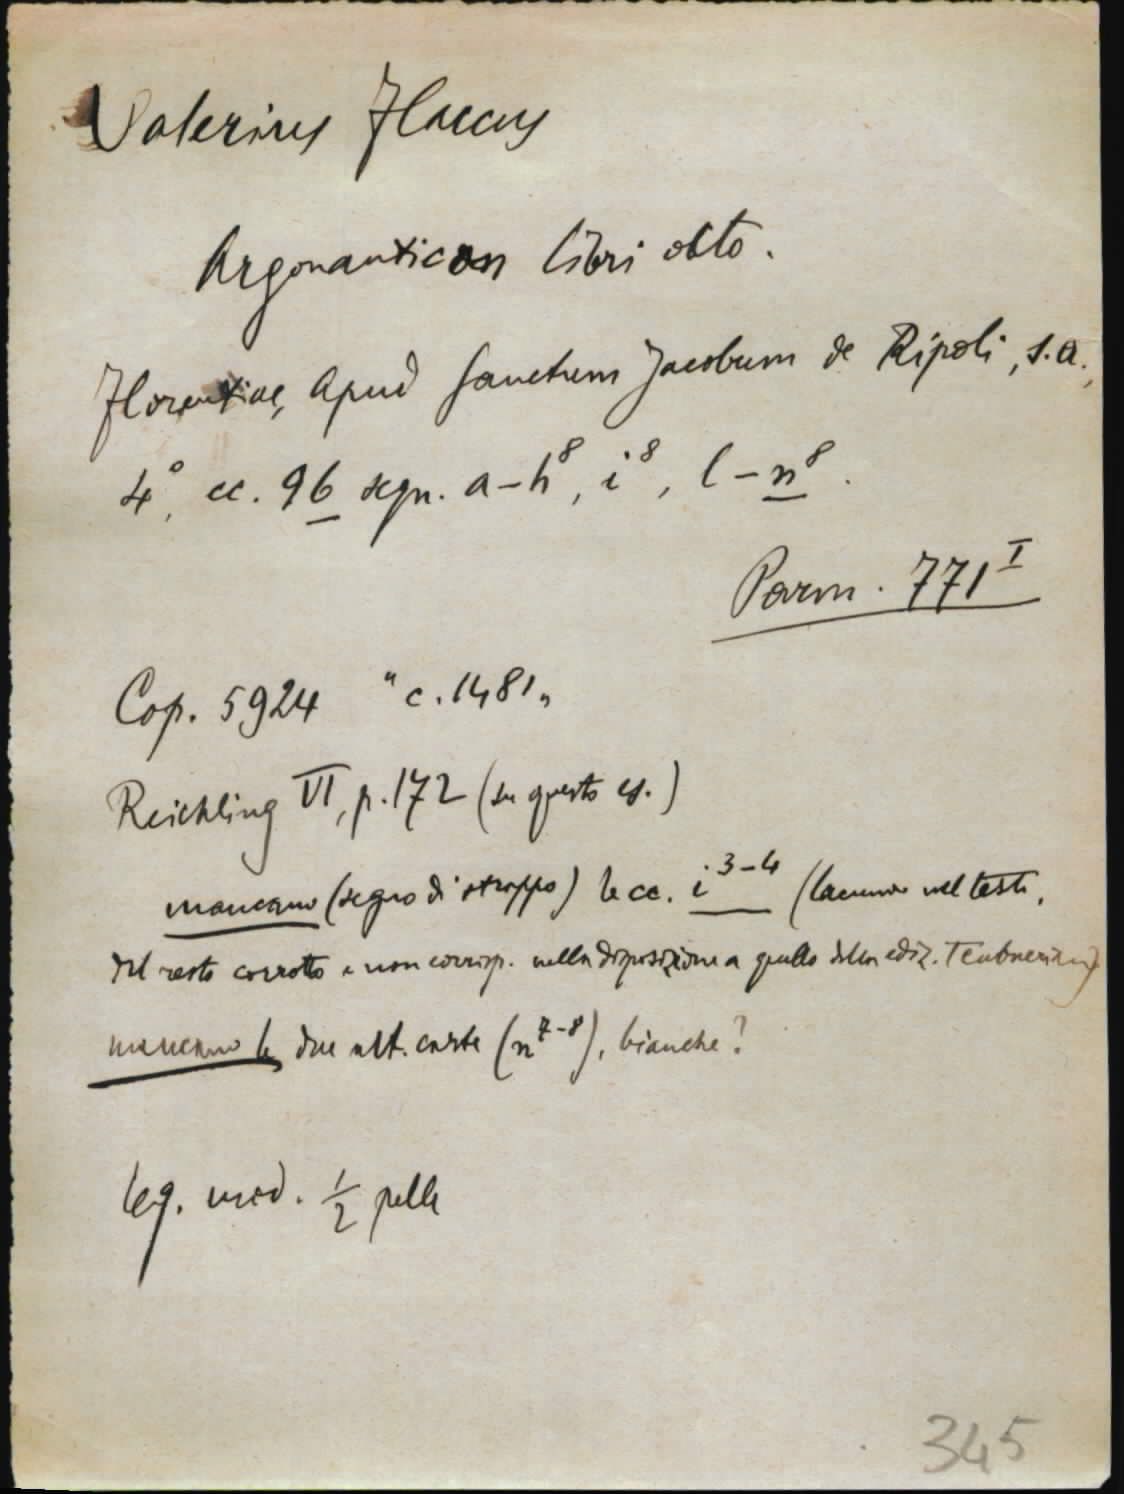 Valerius Flaccus
Argonauticon libri octo.
Florentiae, Apud Sanctum Jacobum de Ripoli, s.a.,
4°, cc. 96 segn. a-h⁸, i⁸, l-n⁸.
Parm. 771ᴵ
Cop. 5924 "c. 1481"
Reichling VI, p. 172 (su questo es.)
mancano (segno di strappo) le cc. i³⁻⁴ (lacuna nel testo,
del resto corrotto e non corrisp. nella disposizione a quello della ediz. Teubneriana)
mancano le due ult. carte (n⁷⁻⁸), bianche?
leg. mod. ½ pelle
345